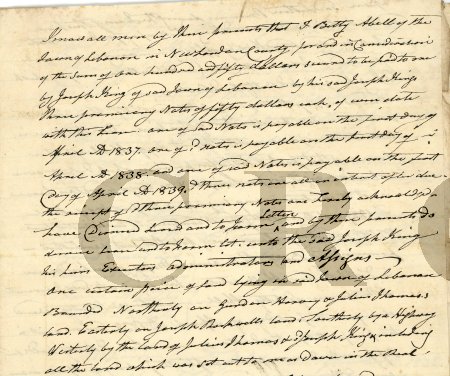 Know all men by these presents that I Betty Abell of the
Town of Lebanon in New London County for and in Consideration
of the Sum of One hundred & fifty dollars secured to be paid to me
by Joseph King of sad Town of Lebanon by his sad Joseph Kings
three promissory Notes of fifty dollars each, of even date
with this Lease one of sad Notes is payable on the first day of
April AD 1837. one of sd notes is payable on the first day of
April AD 1838. and one of sad Notes is payable on the first
day of April AD 1839. sd three notes on interest after due
the receipt of sd three promissory Notes are hereby acknowledged
have Demised Leased and to Farm letten and by these presents do
demise Lease and to Farm let unto the sad Joseph King
his heirs Executors administrators and Assigns
One certain piece of land lying in sad Town of Lebanon
Bounded Northerly on Gordon Harvey & Julius Thomas's
land Easterly on Joseph Rockwells land Southerly by a Highway
Westerly by the land of Julius Thomas & sd Joseph King including
all the land which was set out to me as Dower in the Real
CRO